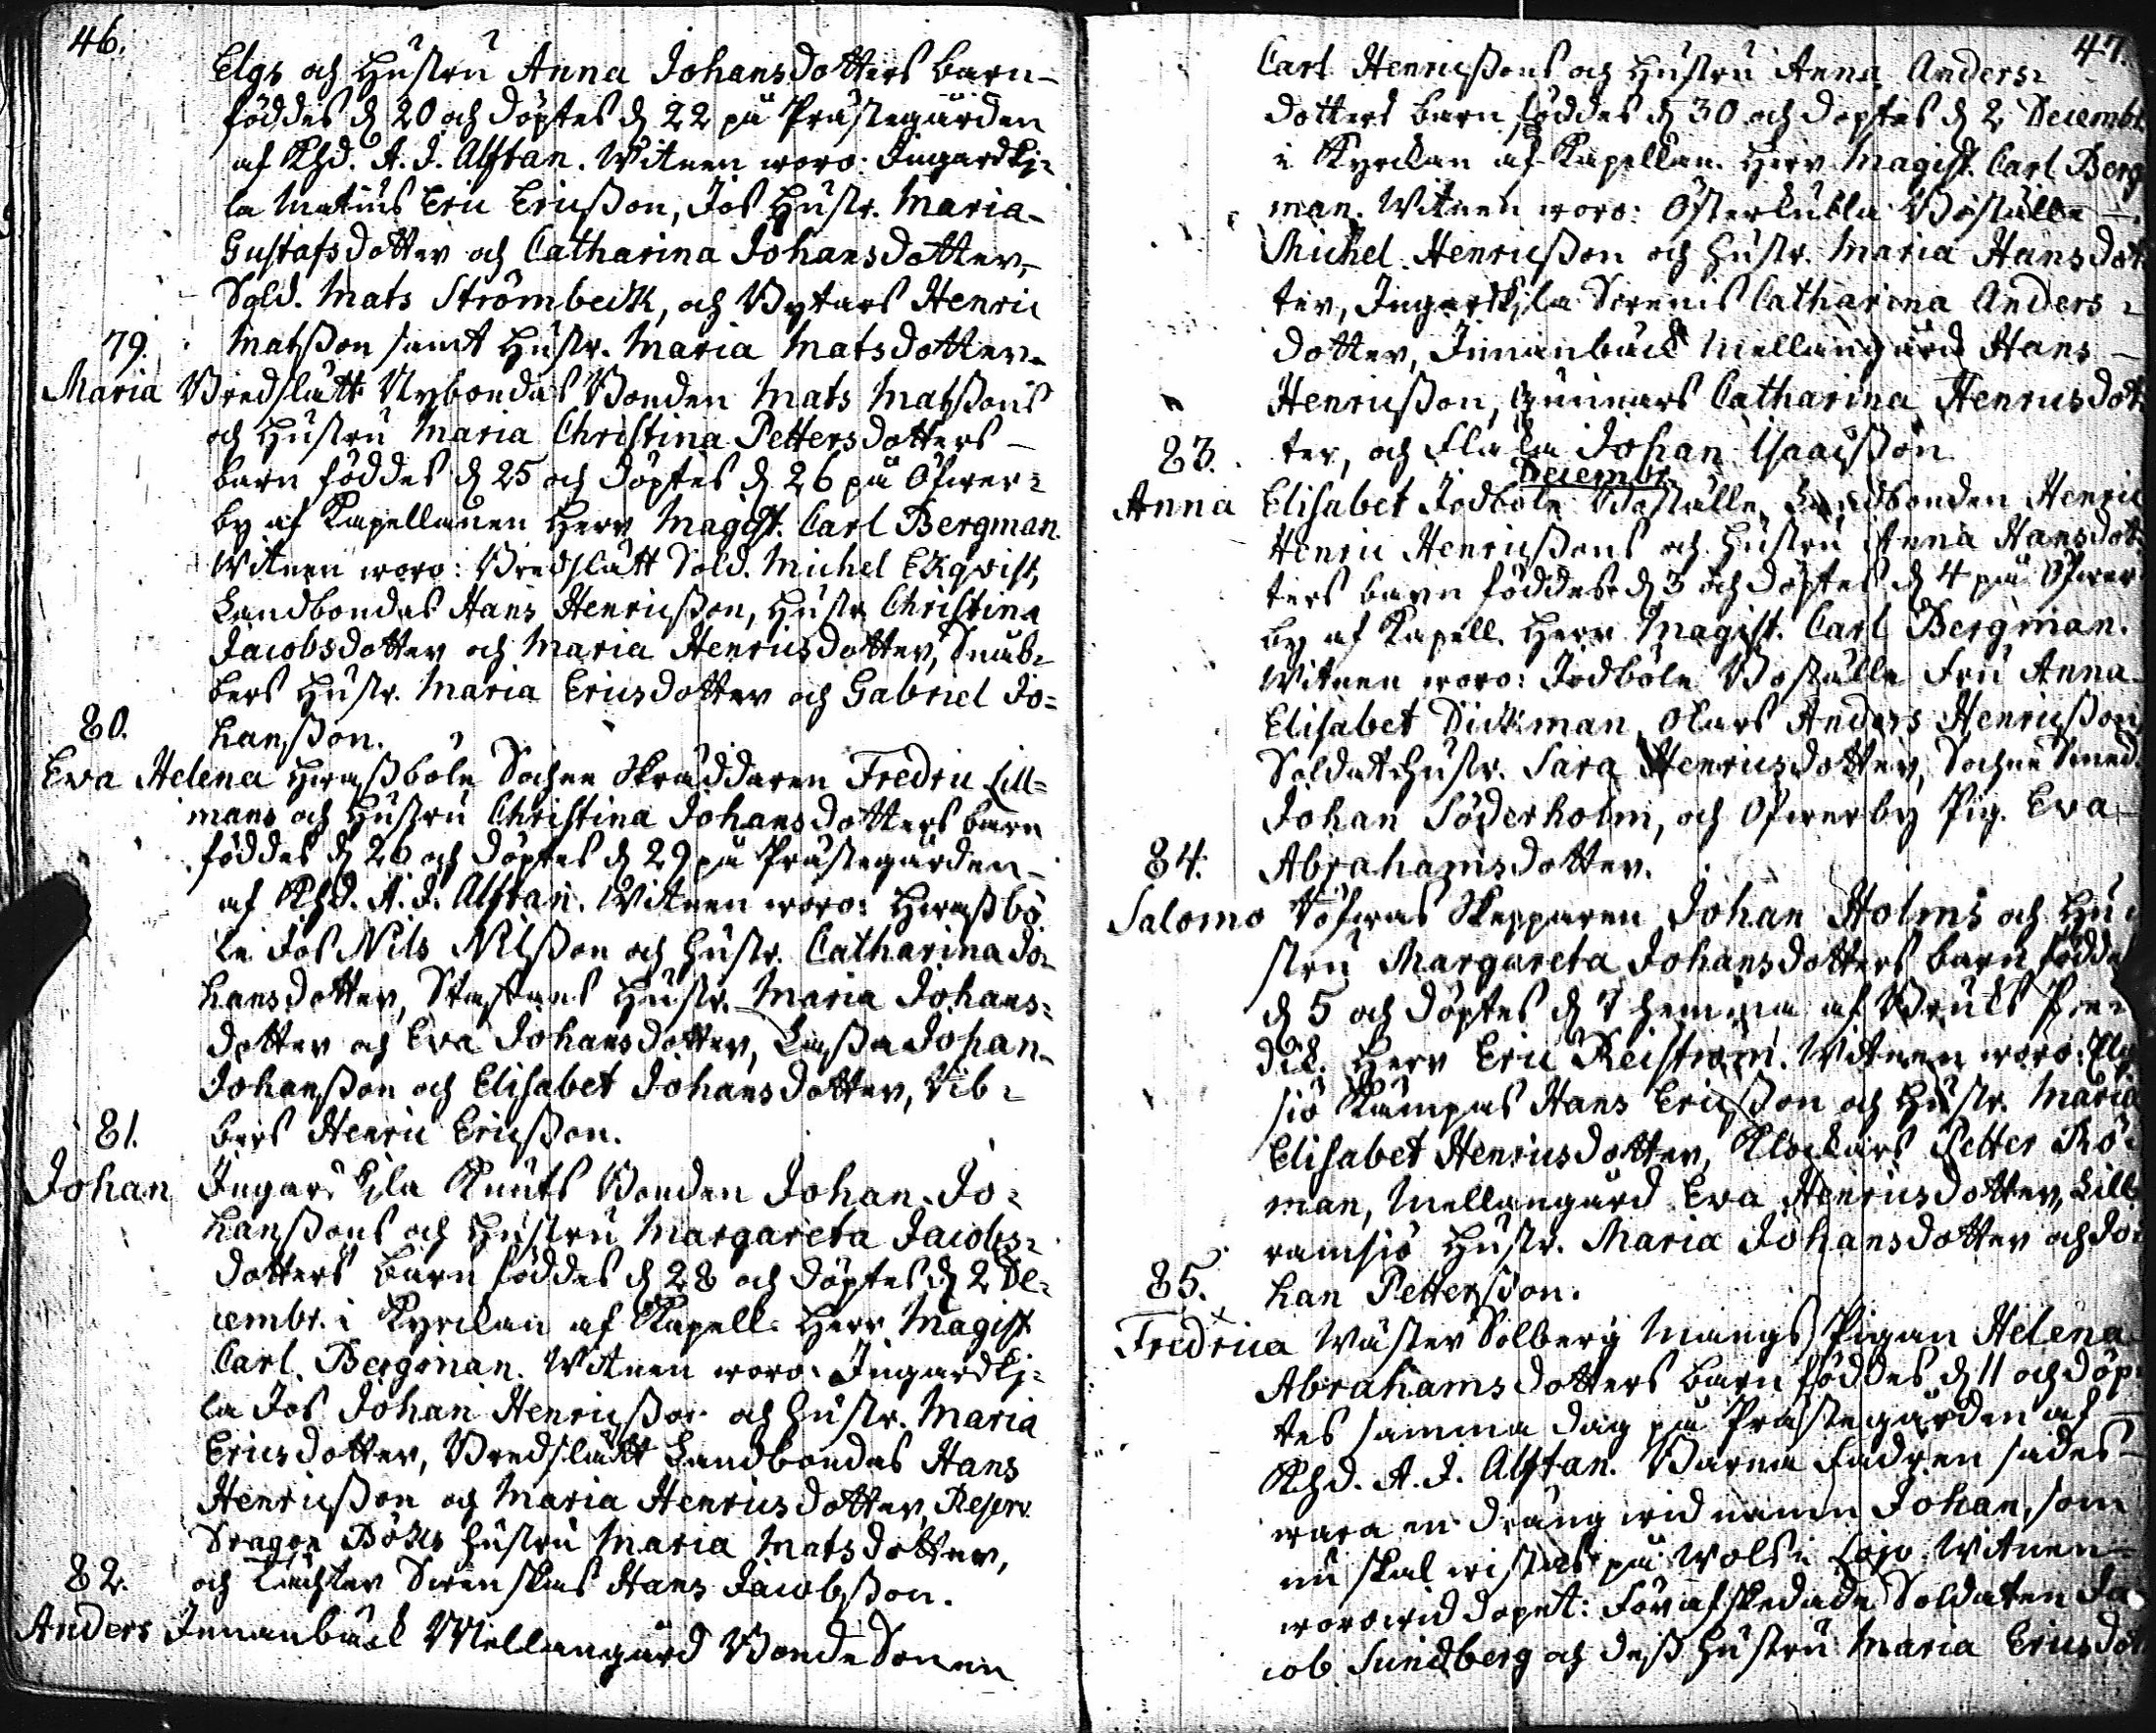 46.
Elgs och Hustru Anna Johansdotters barn
föddes d 20 och döptes d 22 på Prästegården
af Khd. A. J. Alftan. Witnen woro: Ingardkj=
la Matius Eric Ericßon, Jos Hustr. Maria
Gustafsdotter och Catharina Johansdotter,
Sold. Mats Strömbeck, och Bytars Henric
79. Matsson samt Hustr. Maria Matsdotter.
Maria Bredslätt Nybondas Bonden Mats Matßons
och Hustru Maria Christina Pettersdotters
barn föddes d 25 och döptes d 26 på Öfwer=
by af Kapellanen Herr Magist. Carl Bergman.
Witnen woro: Bredslätt Sold. Michel Ekqvist,
Landbondas Hans Henricßon, Hustr. Christina
Jacobsdotter och Maria Henricsdotter, Snäb=
bers Hustr. Maria Ericsdotter och Gabriel Jo=
80. hansson.
Eva Helena Heraßböle Sockne Skräddaren Fredric Lill=
mans och Hustru Christina Johansdotters barn
föddes d 26 och döptes d 29 på Prästegården
af Khd. A. J. Alftan. Witnen woro: Heraßbö
le Jos Nils Nilsson och Hustr. Catharina Jo=
hansdotter, Staffans Hustr. Maria Johans=
dotter och Eva Johansdotter, Laßa Johan
Johanßon och Elisabet Johansdotter, Vib=
81. bers Henric Ericßon.
Johan Ingardkjla Knuts Bonden Johan Jo=
hanßons och Hustru Margareta Jacobs=
dotters barn föddes d 28 och döptes d 2 De=
cembr. i Kyrckan af Kapell. Herr Magist
Carl Bergman. Witnen woro: Ingardkj=
la Jos Johan Henricßon och Hustr. Maria
Ericsdotter, Bredslätt Landbondas Hans
Henricßon och Maria Henricsdotter, Reserv.
Dragon Böks Hustru Maria Matsdotter,
82. och Täckter Swenskas Hans Jacobsson.
Anders Innanbäck Mellangård Bonde Sonen
47.
Carl Henricßons och Hustru Anna Anders=
dotters barn föddes d 30 och döptes d 2 Decembr
i Kyrckan af Kapellan. Herr Magist. Carl Berg
man. Witnen woro: Österkulla Boställe
Michel Henricßon och Hustr. Maria Hansdot
ter, Ingardkjla Swens Catharina Anders=
dotter, Innanbäck Mellangård Hans
Henricßon, Gunnars Catharina Henricsdot
83. ter, och Johan Isaacßon
Decembr.
Anna Elisabet Jodböle Boställe Landbonden Henric
Henric Henricßons och Hustru Anna Hansdot
ters barn föddes d 3 och döptes d 4 på Öfwer
by af Kapell. Herr Magist. Carl Bergman.
Witnen woro: Jodböle Boställe Fru Anna
Elisabet Dickman, Olars Anders Henricßon
Soldatshustr. Sara Henricsdotter, Sockne Smed.
Johan Söderholm, och Öfwerby Pig. Eva
84. Abrahamsdotter.
Salomo Töfwas Skepparen Johan Holms och Hu
stru Margareta Johansdotters barn föddes
d 5 och döptes d 7 hemma af Bruks Pre
dik. Herr Eric Reiström. Witnen woro: Elg
siö Kämpas Hans Ericßon och Hustr. Maria
Elisabet Henricsdotter, Klockars Petter Rö
man, Mellangård Eva Henricsdotter, Lill
ramsiö Hustr. Maria Johansdotter och Jo
85. han Petterßon.
Fredrica Wäster Solberg Mangs Pigan Helena
Abrahamsdotters barn föddes d 11 och döp
tes samma dag på Prästegården af
Khd. A. J. Alftan. Barna Fadren sades
wara en dräng wid namn Johan, som
nu skal wistas på Wols i Lojo. Witnen
woro wid dopet: För afskedade Soldaten Ja
cob Sundberg och deß Hustru Maria Ericsdot